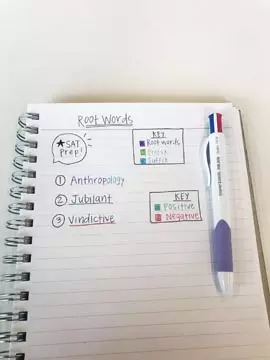 Root Words
★SAT
Prep!
KEY
Root words
Prefix
Suffix
① Anthropology
② Jubilant
③ Vindictive
KEY
Positive
Negative